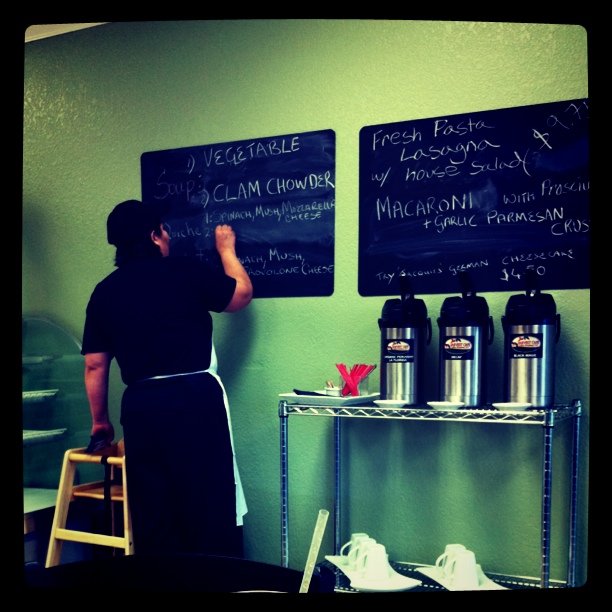 1) VEGETABLE
Soup: 2) CLAM CHOWDER
1. SPINACH, MUSH, MOZZARELLA
CHEESE
Quiche 2
MUSH,
PROVOLONE CHEESE
Fresh Pasta
Lasagna
w/ house Salad
$9.7
MACARONI WITH PROSCIU
+ GARLIC PARMESAN
CRUS
TRY GERMAN CHEESECAKE
$4.50
DECAF